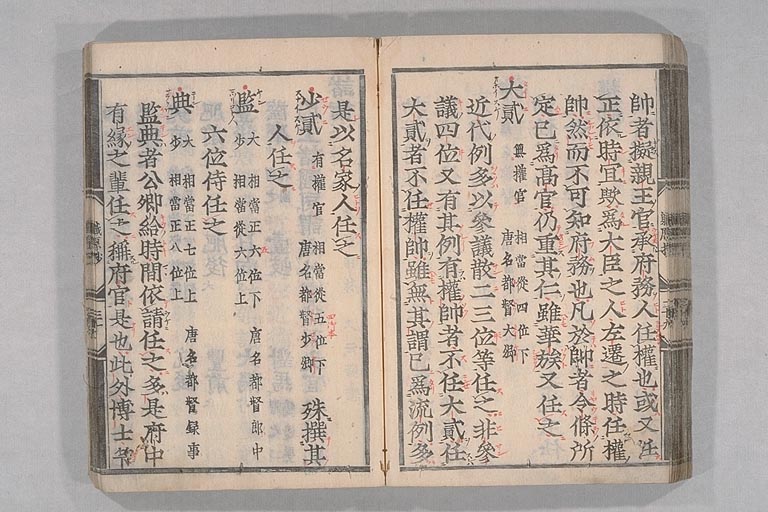 帥者擬親王官承府務人任權也或又任
正依時宜歟爲大臣之人左遷之時任權
帥然而不可知府務也凡於帥者令條所
定已爲高官仍重其仁雖華族又任之
大貳 無權官 相當從四位下 唐名都督大卿
近代例多以參議散二三位等任之非參
議四位又有其例有權帥者不任大貳任
大貳者不任權帥雖無其謂已爲流例多
是以名家人任之
少貳 有權官 相當從五位下 唐名都督少卿 殊撰其
人任之
監 大 相當正六位下 少 相當從六位上 唐名都督郎中
六位侍任之
典 大 相當正七位上 少 相當正八位上 唐名都督録事
監典者公卿給時間依請任之多是府中
有縁之輩任之稱府官是也此外博士等